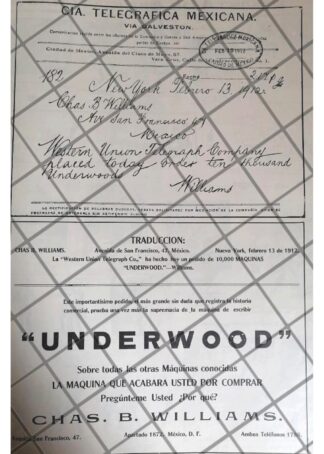 CIA. TELEGRAFICA MEXICANA.
VIA GALVESTON.
Ciudad de México, Avenida del Cinco de Mayo, 57.
182
New York Febrero 13, 1912
Chas B Williams
Ave San Francisco 47
Mexico
Western Union Telegraph Company
placed today order ten thousand
Underwoods
Williams
TRADUCCION:
CHAS B. WILLIAMS. Avenida de San Francisco, 47, México. Nueva York, febrero 13 de 1912.
La "Western Union Telegraph Co.," ha hecho hoy un pedido de 10,000 MAQUINAS
"UNDERWOOD."—Williams.
Este importantísimo pedido, el más grande sin duda que registra la historia
comercial, prueba una vez más la supremacía de la maquina de escribir
"UNDERWOOD"
Sobre todas las otras Máquinas conocidas
LA MAQUINA QUE ACABARA USTED POR COMPRAR
Pregúnteme Usted ¿Por qué?
CHAS. B. WILLIAMS.
San Francisco, 47. Apartado 1872. México, D. F. Ambos Teléfonos